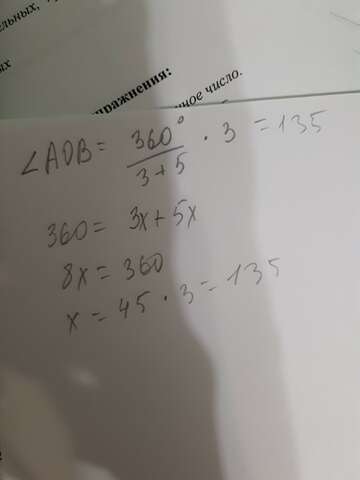 ельных,
ых
пражнения:
ное число.
∠AOB = 360°/(3+5) · 3 = 135
360 = 3x + 5x
8x = 360
x = 45 · 3 = 135